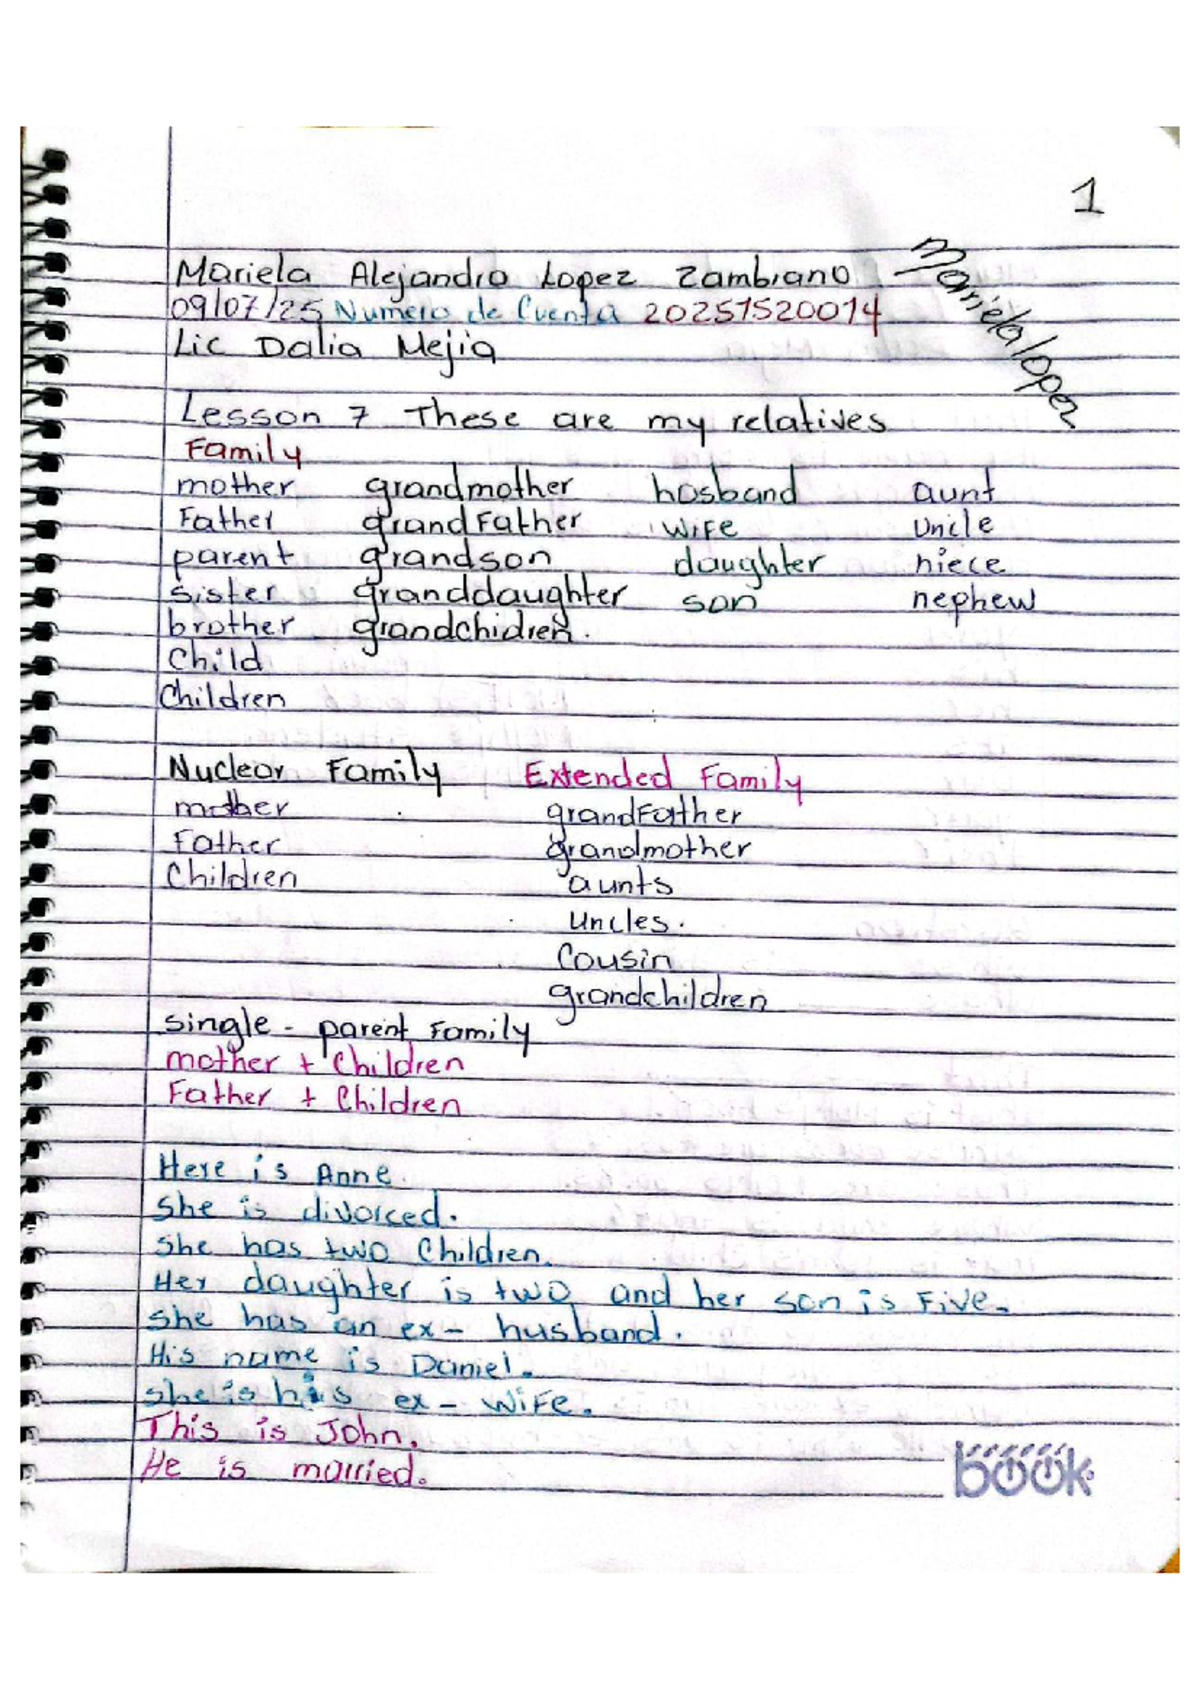 1
Mariela Alejandra Lopez Zambrano
Mariela lopez
09/07/25 Numero de Cuenta 20251520014
Lic Dalia Mejia
Lesson 7 These are my relatives
Family
mother grandmother hosband aunt
Father grandFather wiFe Uncle
parent grandson daughter niece
sister granddaughter son nephew
brother grandchidren.
Child
Children
Nuclear Family Extended Family
mother grandFather
Father grandmother
Children aunts
Uncles.
Cousin
grandchildren
single - parent Family
mother + Children
Father + Children
Here is Anne.
She is divorced.
She has two Children.
Her daughter is two and her son is Five.
She has an ex- husband.
His name is Daniel.
She is his ex - wiFe.
This is John.
He is married.
book